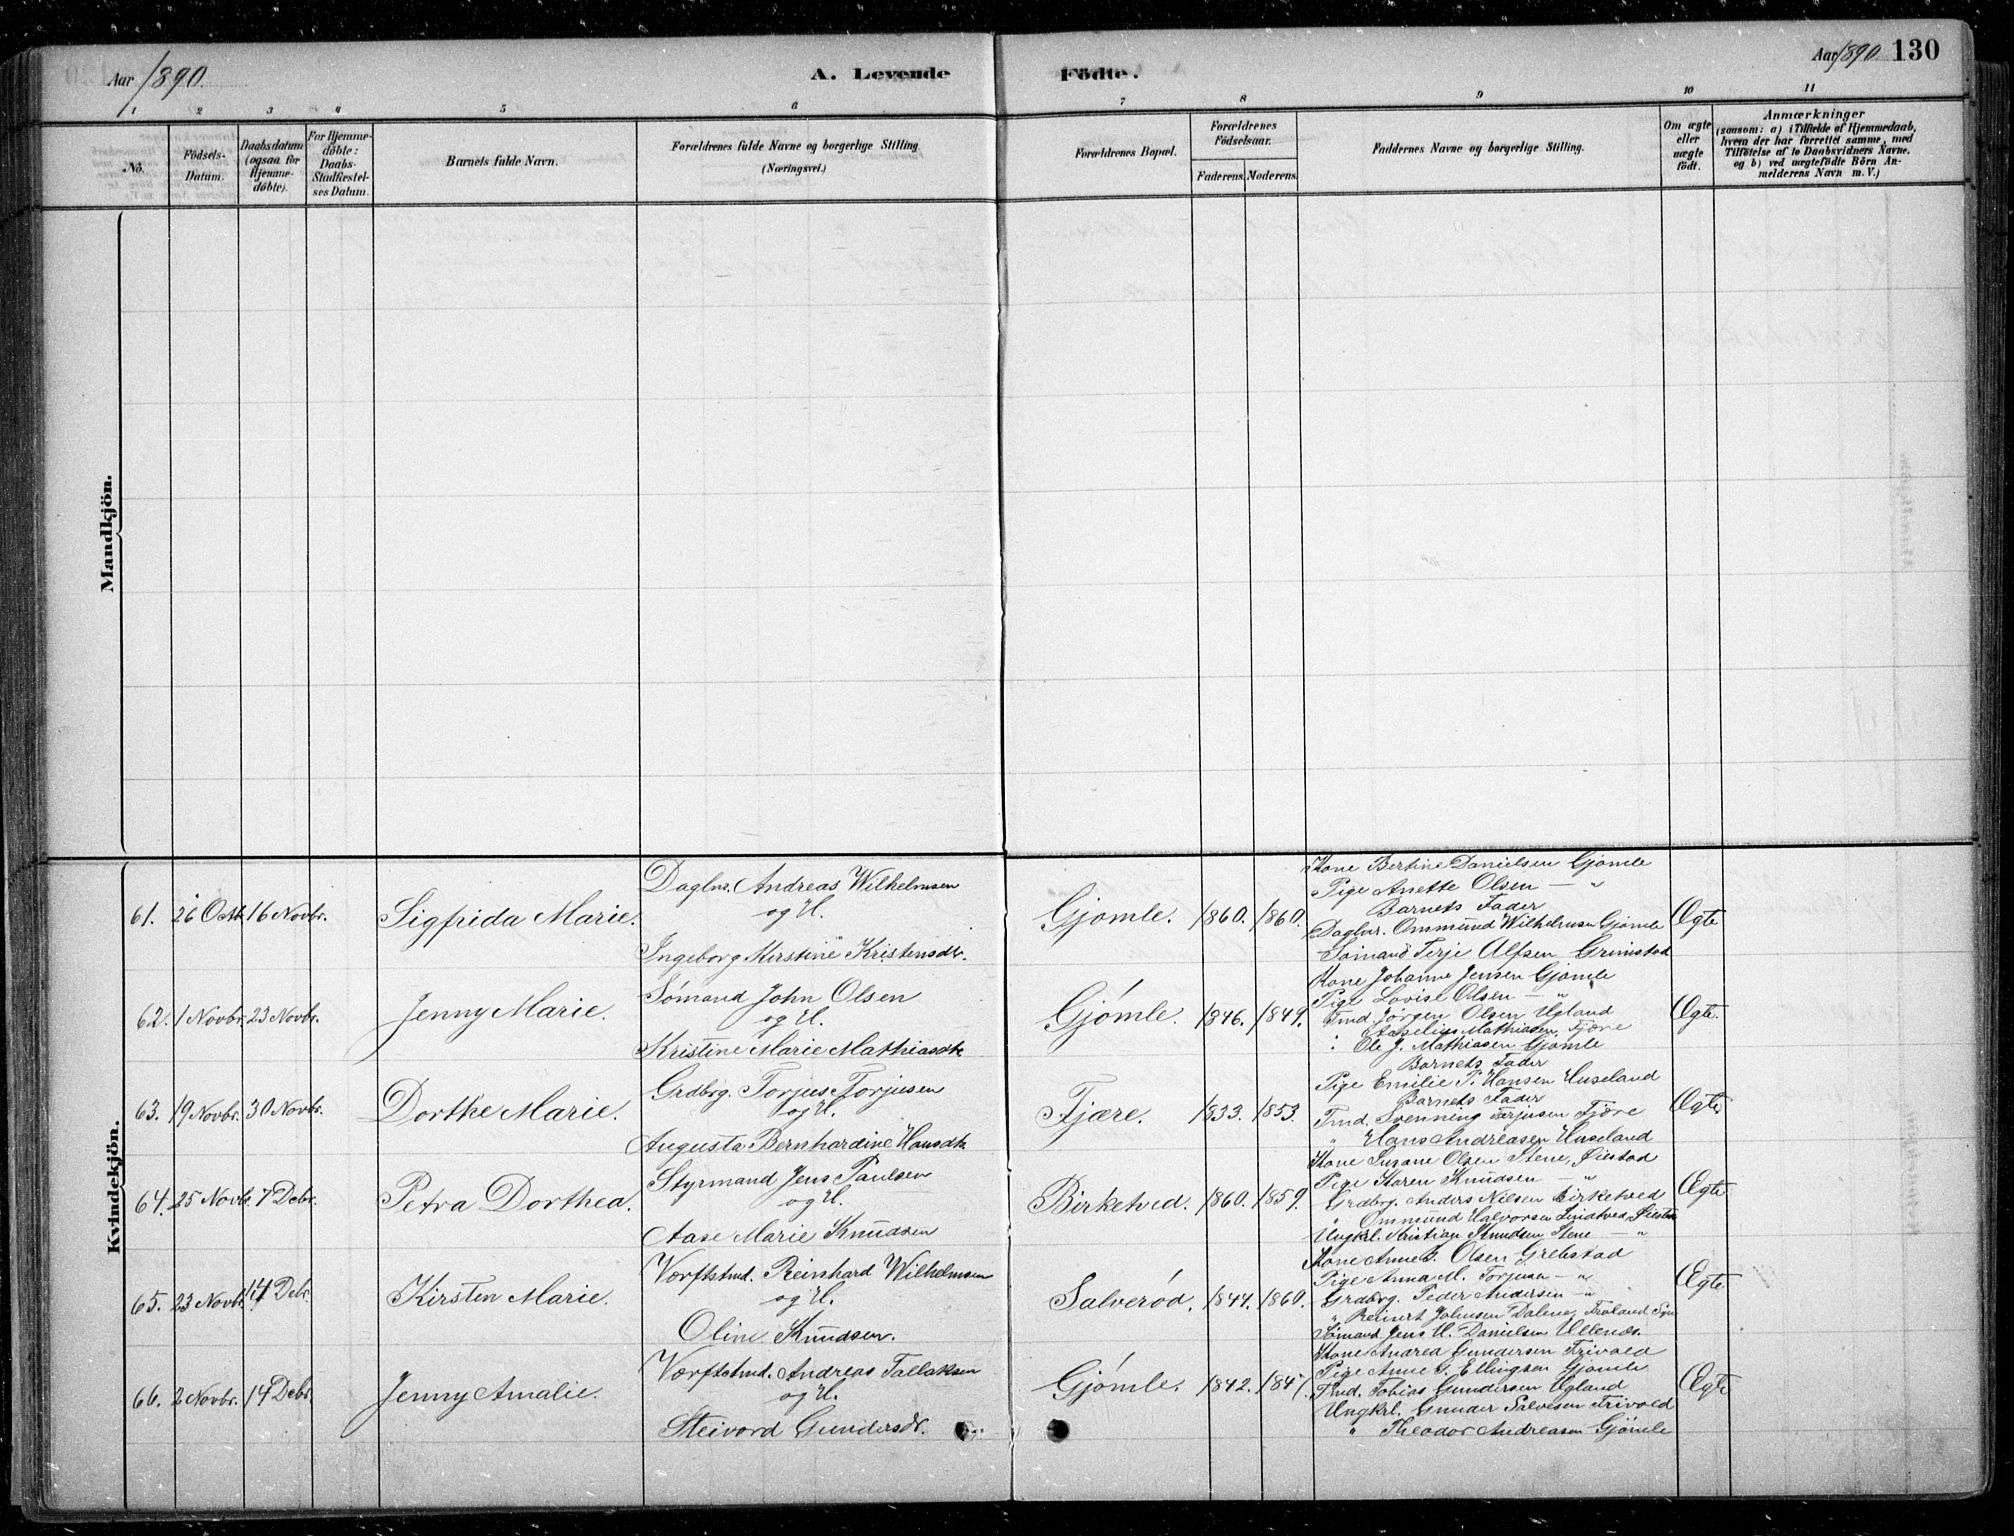 Aar 1890.
A. Levende Födte.
Aar 1890. 130
1 2 3 4 5 6 7 8 9 10 11
No.
Födsels-Datum.
Daabsdatum (ogsaa for Hjemme-döbte).
For Hjemme-döbte: Daabs-Stadfæstel-ses Datum.
Barnets fulde Navn.
Forældrenes fulde Navne og borgerlige Stilling.
(Næringsvei.)
Forældrenes Bopæl.
Forældrenes Födselsaar.
Faderens. Moderens.
Faddernes Navne og borgerlige Stilling.
Om ægte eller uægte födt.
Anmærkninger
(saasom: a) i Tilfælde af Hjemmedaab,
hvem der har forrettet samme, med
Tilföielse af to Daabsvidners Navne,
og b) ved uægtefödte Börn An-
melderens Navn m. V.)
Mandkjön.
Kvindekjön.
61. 26 Octb. 16 Novbr. Sigfrida Marie.
Daglnr. Andreas Wilhelmsen
og H.
Ingeborg Kirstine Kristensdtr.
Gjømle. 1860. 1860.
Kone Bertine Danielsen Gjømle
Pige Anette Olsen — "
Barnets Fader
Daglnr. Ommund Wilhelmsen Gjømle
Sømand Terje Alfsen Grimstad
Ægte
62. 1 Novbr. 23 Novbr. Jenny Marie.
Sømand John Olsen
og H.
Kristine Marie Mathiasdtr
Gjømle. 1846. 1849.
Kone Johanne Jensen Gjømle
Pige Lovise Olsen — "
Tmd. Jørgen Olsen Ugland
Mathiasen, Fjære
Ole J. Mathiasen Gjømle
Barnets Fader
Ægte.
63. 19 Novbr. 30 Novbr. Dorthe Marie.
Grdbrg. Torjus Torjusen
og H.
Augusta Bernhardine Hansdtr
Fjære. 1833. 1853.
Pige Emilie P. Hansen Huseland
Barnets Fader
Tmd. Svenning Torjusen Fjære
" Hans Andreasen Huseland
Ægte
64. 25 Novbr. 7 Debr. Petra Dorthea.
Styrmand Jens Paulsen
og H.
Aase Marie Knudsen
Birketved. 1860. 1859.
Kone Susane Olsen Stene, Øiestad
Pige Karen Knudsen — "
Grdbrg. Anders Nielsen Birketved
" Ommund Halvorsen Lindtved, Øiestad
Ungkrl. Kristian Knudsen Stene — "
Ægte
65. 23 Novbr. 14 Debr. Kirsten Marie.
Værftstmd. Reinhard Wilhelmsen
og H.
Oline Knudsen.
Salverød. 1844. 1860.
Kone Anne G. Olsen Grebstad
Pige Anna M. Torjusen — "
Grdbrg. Peder Andersen — "
" Reinert Johnsen Dalene, Froland
Sømand Jens H. Danielsen
Ægte
66. 2 Novbr. 14 Debr. Jenny Amalie.
Værftstmd. Andreas Tallaksen
og H.
Steivord Gundersdr.
Gjømle. 1842.
Kone Andrea Gundersen Trivold
Pige Anne G. Ellingsen Gjømle
Tmd. Tobias Gundersen Ugland
Ungkrl. Gunder Salvesen Trivold
" Theodor Andreasen Gjømle
Ægte